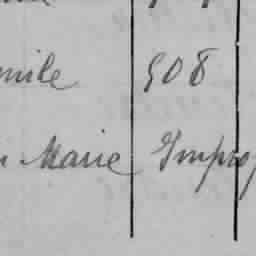 mile 508
n Marie Improp